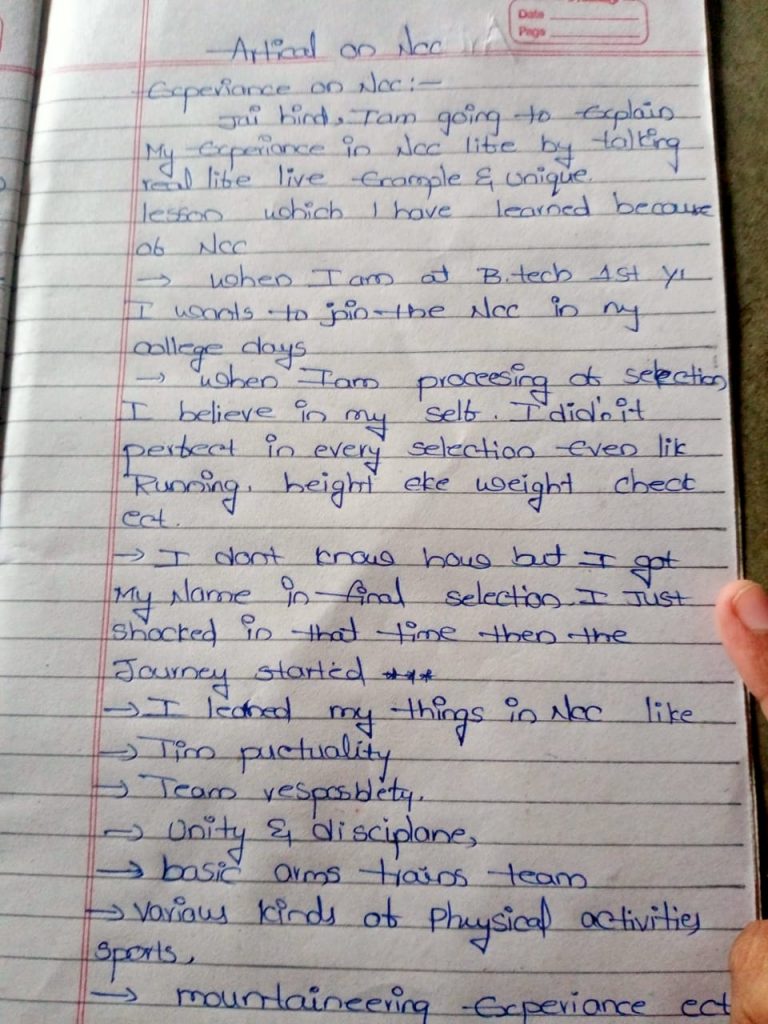 Date
Page
Artical on Ncc
Experiance on Ncc:-
Jai hind, I am going to explain
My Experiance in Ncc life by talking
real life live Example & unique.
lesson which I have learned because
of Ncc
→ when I am at B.tech 1st yr
I wants to join the Ncc in my
college days
→ when I am proceesing of selection
I believe in my self. I didn't
perfect in every selection even lik
Running, height eke weight check
ect.
→ I dont know how but I got
My Name in final selection I Just
shocked in that time then the
Journey started ***
→ I leaned my things in Ncc like
→ Tim puctuality
→ Team resposblety,
→ Unity & disciplane,
→ basic arms trains team
→ Various kinds of Physical activities
sports,
→ mountaineering Experiance ect